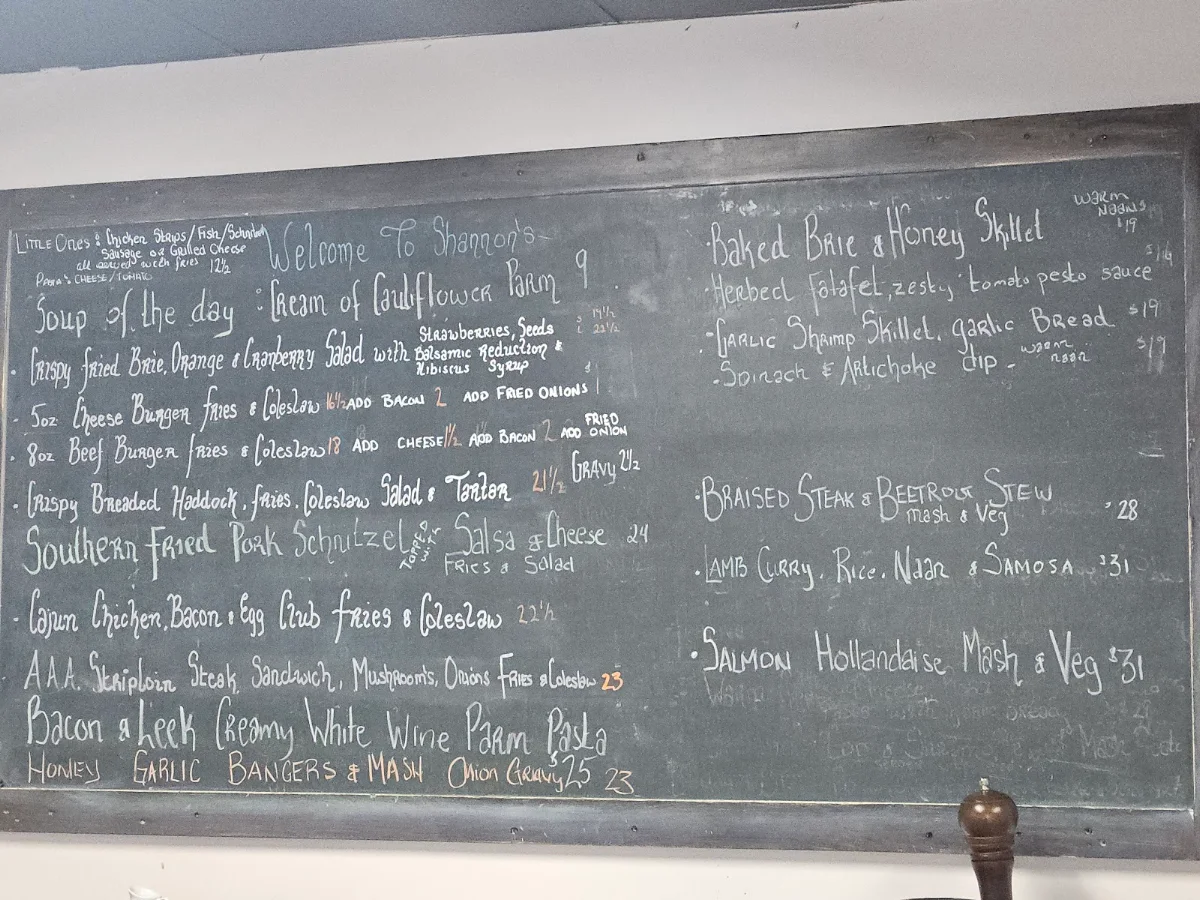 Welcome To Shannon's
Little Ones: Chicken Strips/Fish/Schnitzel
Sausage or Grilled Cheese
all served with fries 12½
Pasta's CHEESE/TOMATO
Soup of the day : Cream of Cauliflower Parm 9
· Crispy fried Brie, Orange & Cranberry Salad with Strawberries, Seeds
Balsamic Reduction &
Hibiscus Syrup
· 5oz Cheese Burger fries & Coleslaw 16½ ADD BACON 2 ADD FRIED ONIONS 1
· 8oz Beef Burger fries & Coleslaw 18 ADD CHEESE 1½ ADD BACON 2 ADD FRIED ONION
· Crispy Breaded Haddock, fries, Coleslaw Salad & Tartar 21½ GRAVY 2½
Southern Fried Pork Schnitzel TOPPED WITH Salsa & Cheese 24
FRIES & Salad
· Cajun Chicken, Bacon & Egg Club fries & Coleslaw 22½
AAA Striploin Steak Sandwich, Mushrooms, Onions FRIES & Coleslaw 23
Bacon & Leek Creamy White Wine Parm Pasta
HONEY GARLIC BANGERS & MASH Onion Gravy $25 23
· Baked Brie & Honey Skillet warm Naans $19
· Herbed fatafel, zesty tomato pesto sauce
· Garlic Shrimp Skillet, garlic Bread $19
· Spinach & Artichoke dip - warm naan
· BRAISED STEAK & BEETROOT STEW 28
mash & Veg
· LAMB CURRY, Rice, Naan & SAMOSA $31
· SALMON Hollandaise Mash & Veg $31